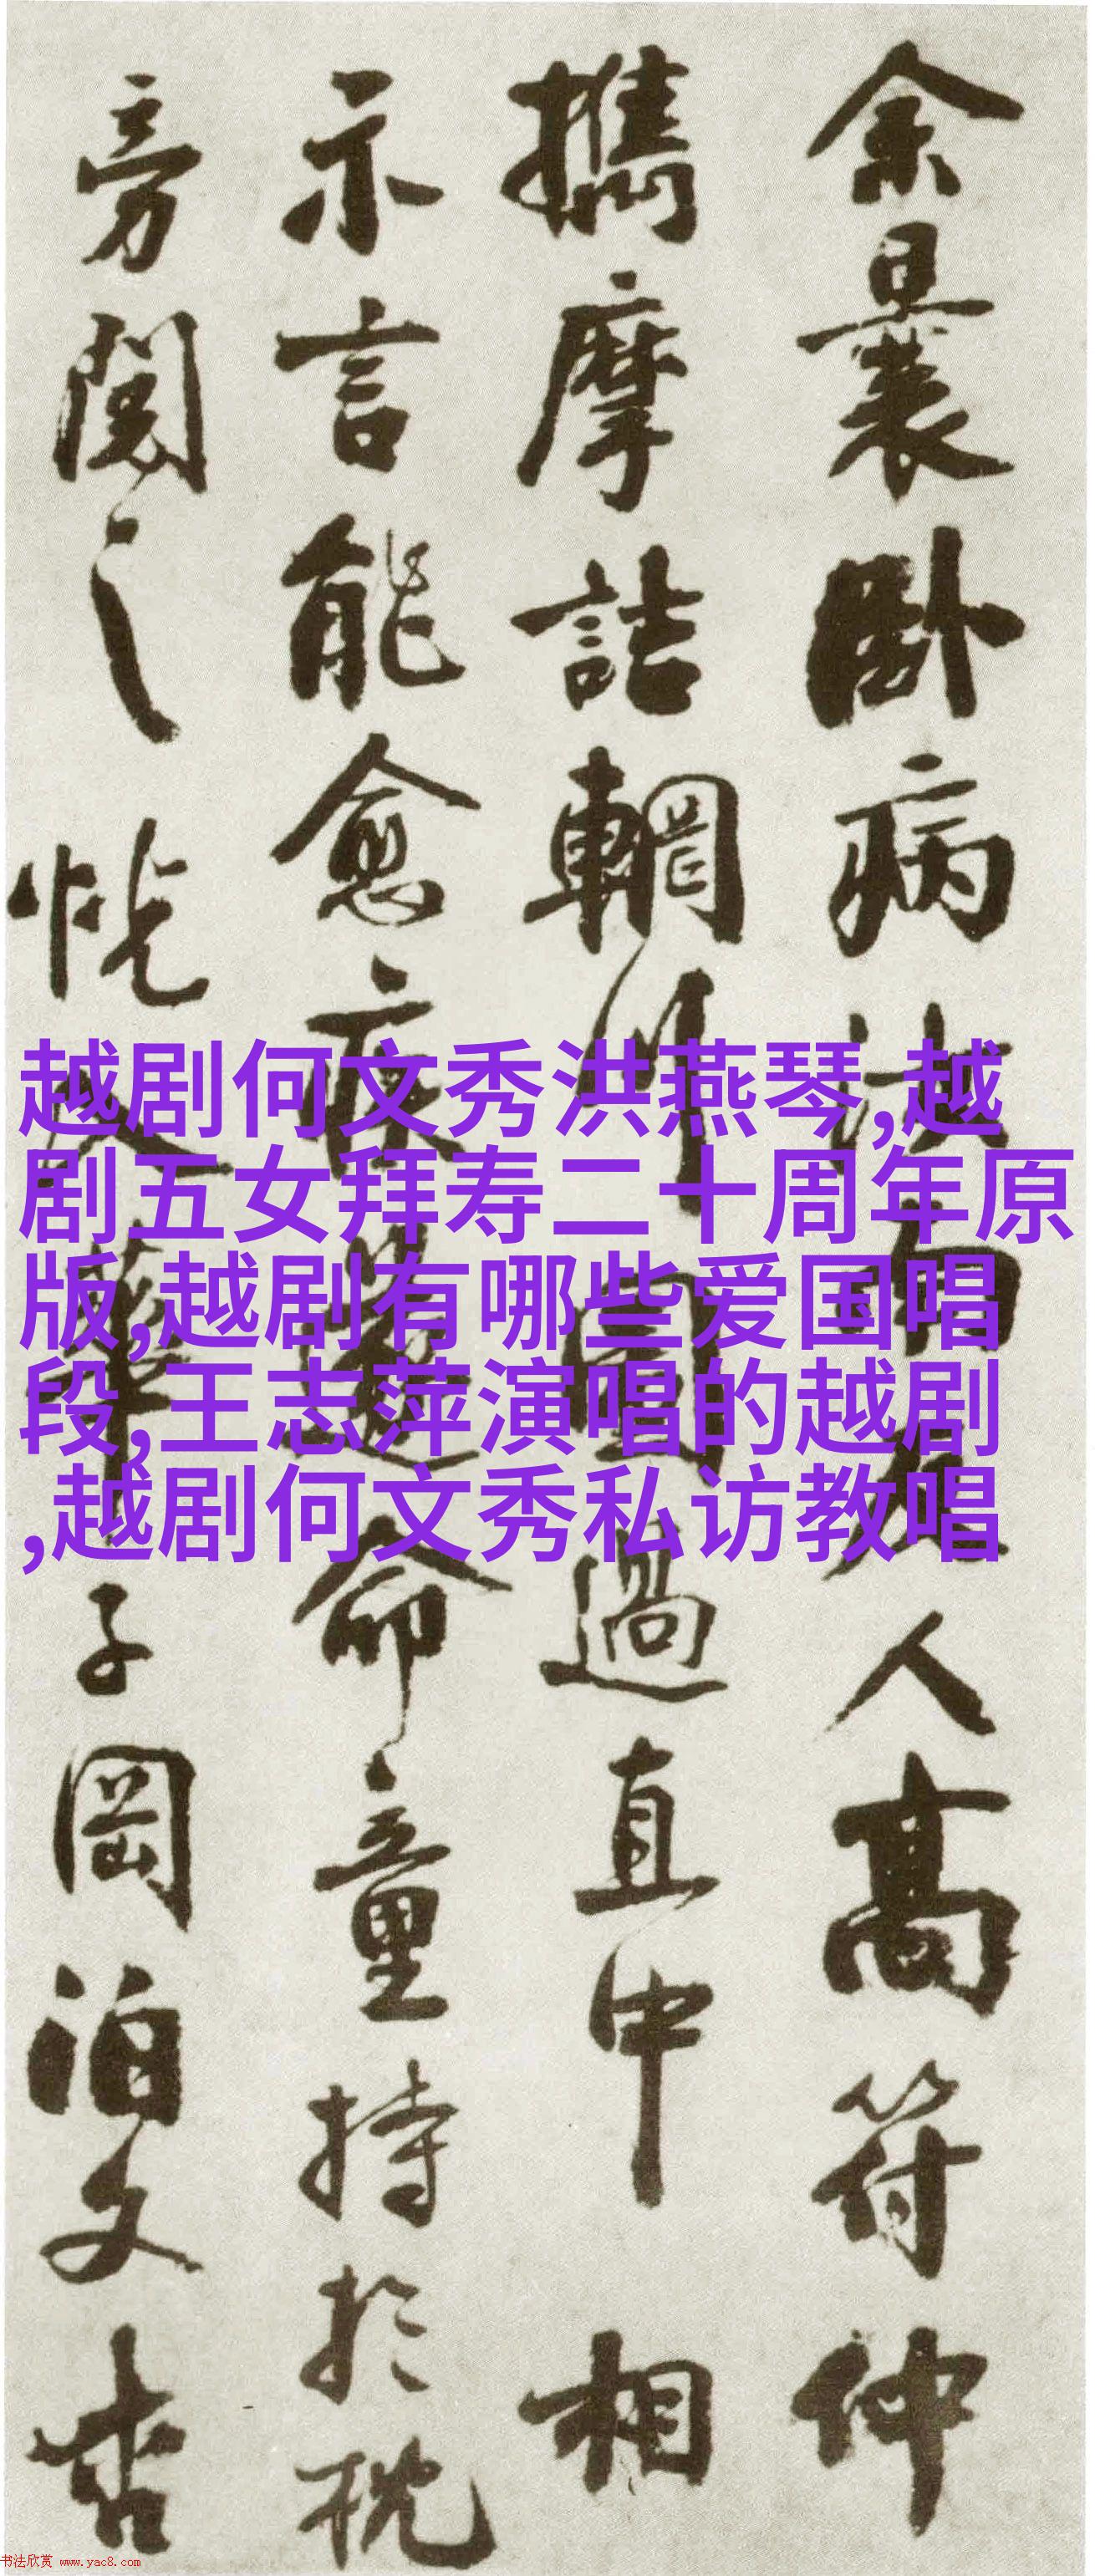 余曩卧病汝南友人高符仲
攜摩詰輞川圖過直中相
示言能愈疾遂命童持於枕
旁閱之恍入華子岡泊文杏
越剧何文秀洪燕琴,越
剧五女拜寿二十周年原
版,越剧有哪些爱国唱
段,王志萍演唱的越剧
,越剧何文秀私访教唱
书法欣赏 www.yac8.com